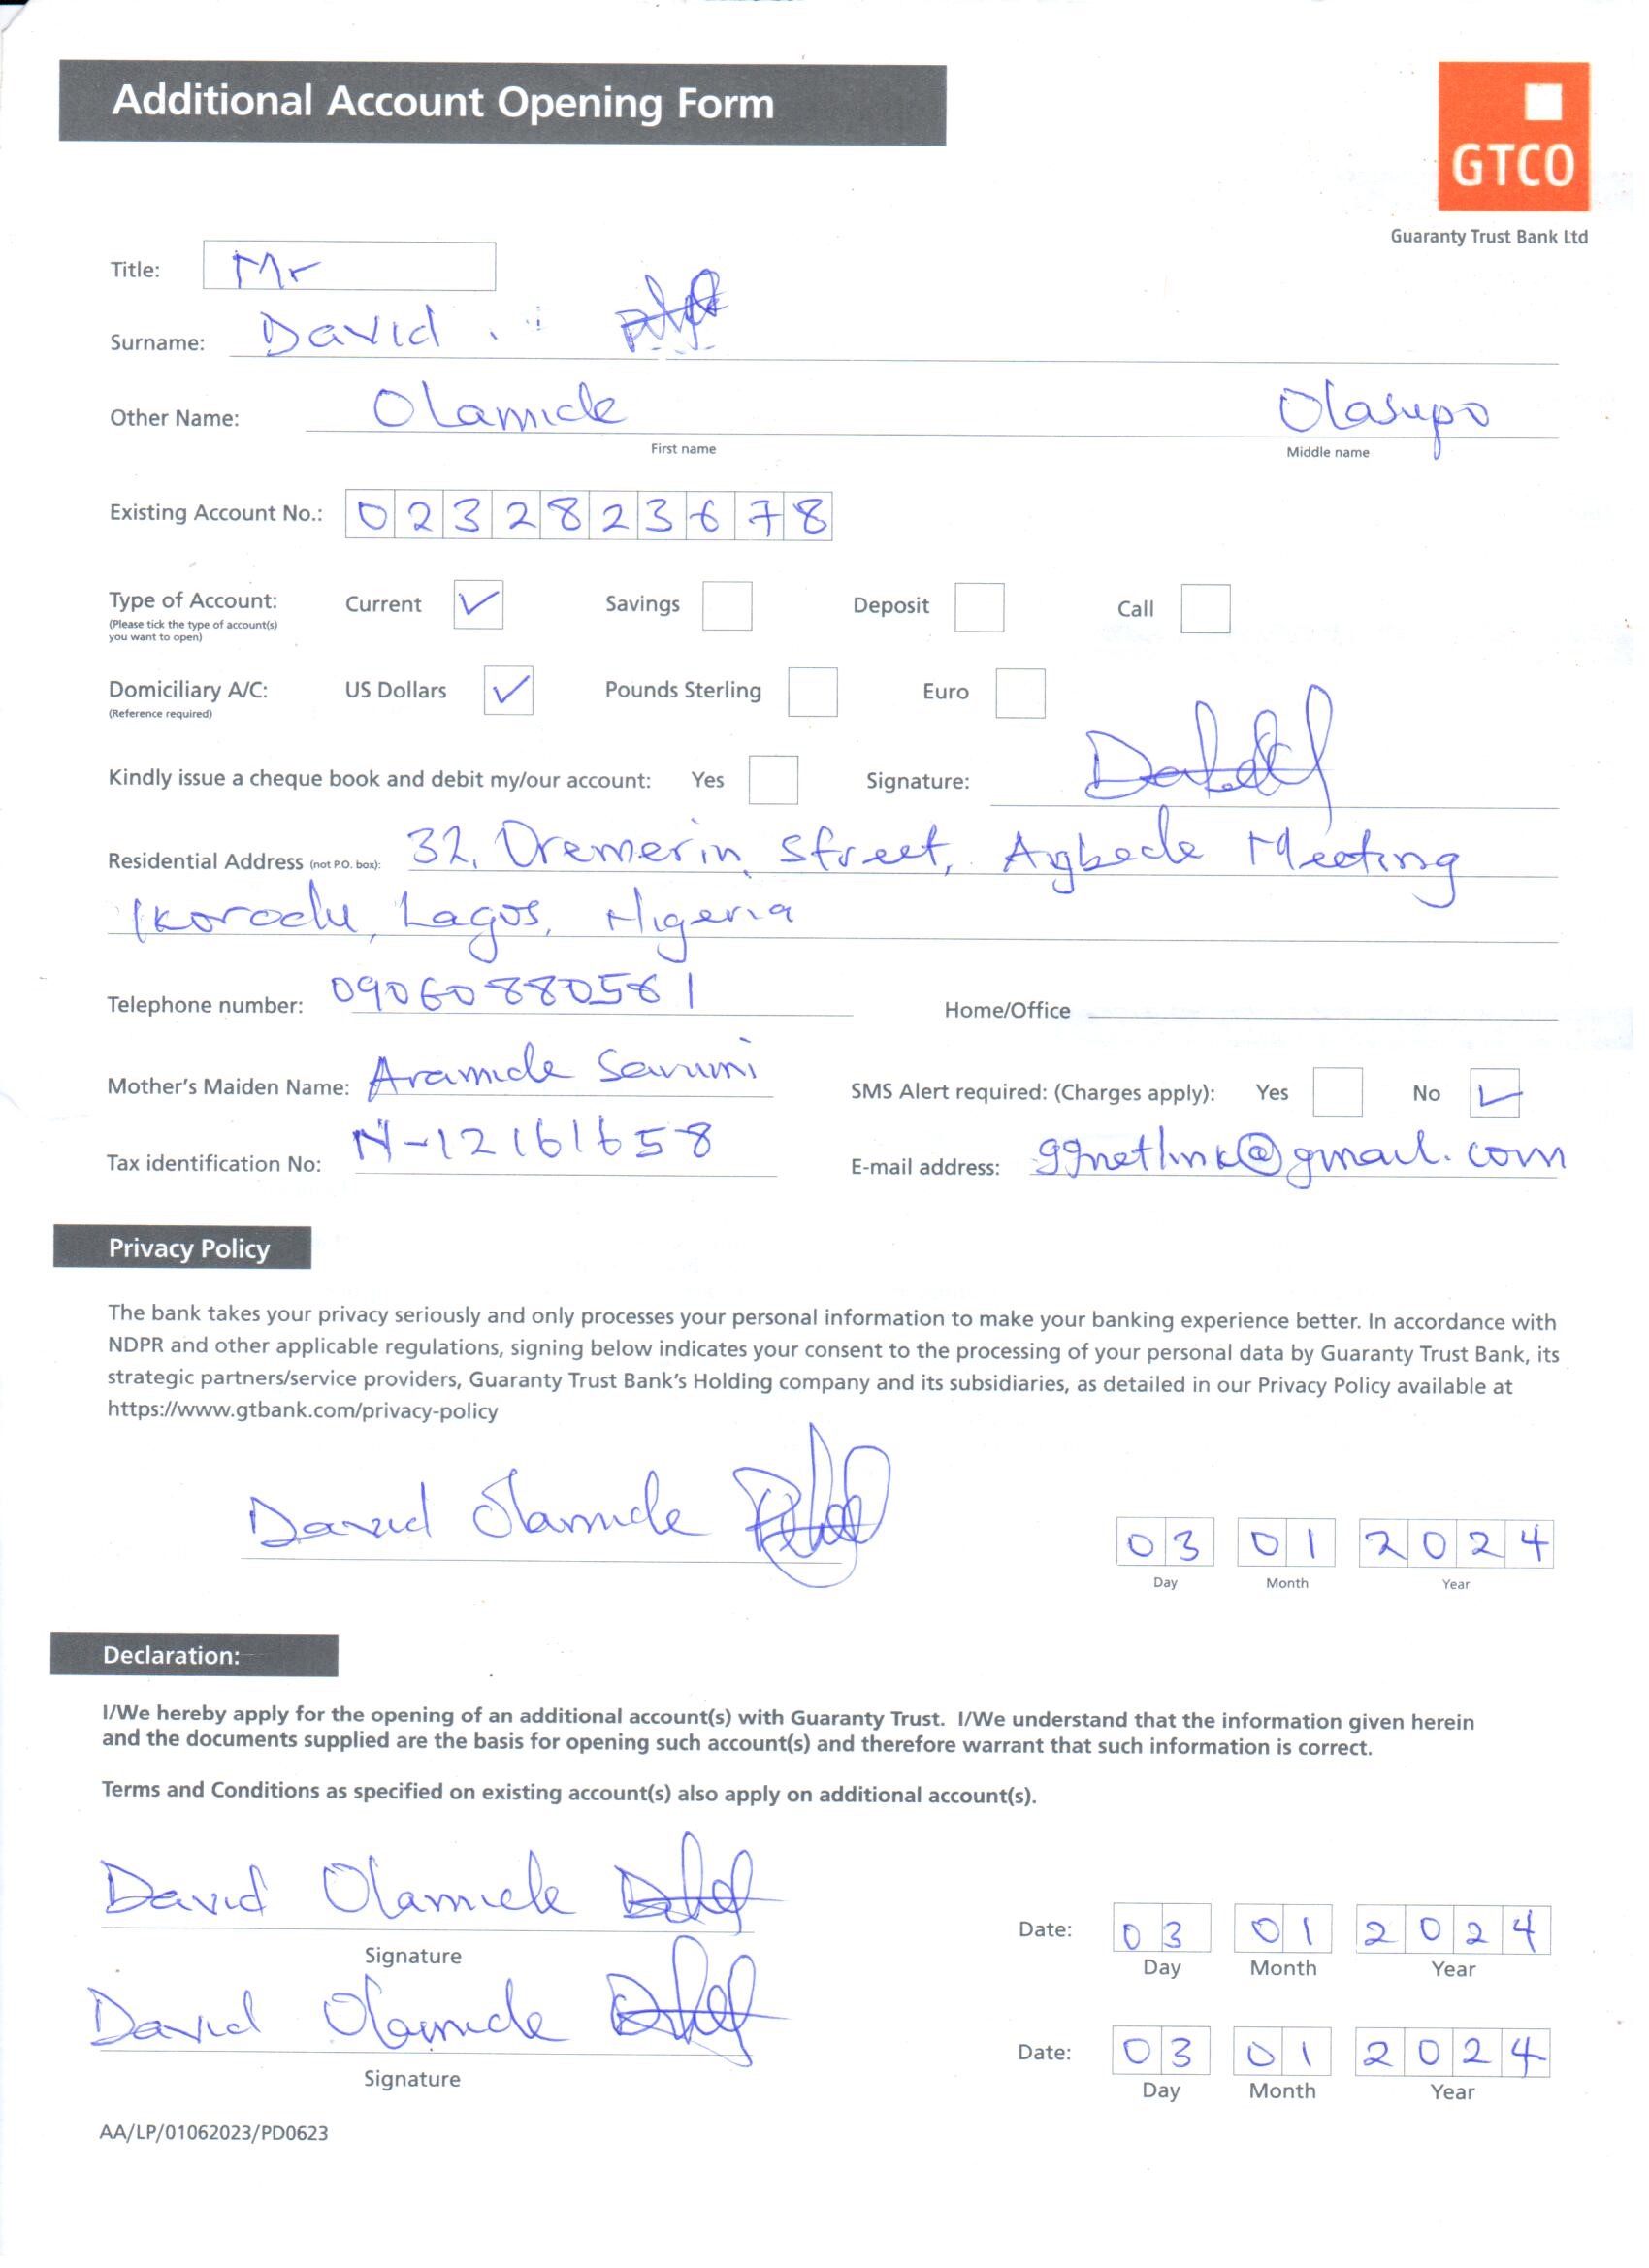 Additional Account Opening Form
GTCO
Guaranty Trust Bank Ltd
Title: Mr
Surname: David
Other Name: Olamide Olasupo
First name Middle name
Existing Account No.: 0232823678
Type of Account: Current ✓ Savings Deposit Call
(Please tick the type of account(s)
you want to open)
Domiciliary A/C: US Dollars ✓ Pounds Sterling Euro
(Reference required)
Kindly issue a cheque book and debit my/our account: Yes Signature:
Residential Address (not P.O. box): 32, Oremerin Street, Agbede Meeting
Ikorodu, Lagos, Nigeria
Telephone number: 09060880561 Home/Office
Mother's Maiden Name: Aramide SMS Alert required: (Charges apply): Yes No ✓
Tax identification No: N-12161658 E-mail address: ggnetlink@gmail.com
Privacy Policy
The bank takes your privacy seriously and only processes your personal information to make your banking experience better. In accordance with
NDPR and other applicable regulations, signing below indicates your consent to the processing of your personal data by Guaranty Trust Bank, its
strategic partners/service providers, Guaranty Trust Bank's Holding company and its subsidiaries, as detailed in our Privacy Policy available at
https://www.gtbank.com/privacy-policy
David Olamide 03 01 2024
Day Month Year
Declaration:
I/We hereby apply for the opening of an additional account(s) with Guaranty Trust. I/We understand that the information given herein
and the documents supplied are the basis for opening such account(s) and therefore warrant that such information is correct.
Terms and Conditions as specified on existing account(s) also apply on additional account(s).
David Olamide Date: 03 01 2024
Signature Day Month Year
David Olamide Date: 03 01 2024
Signature Day Month Year
AA/LP/01062023/PD0623